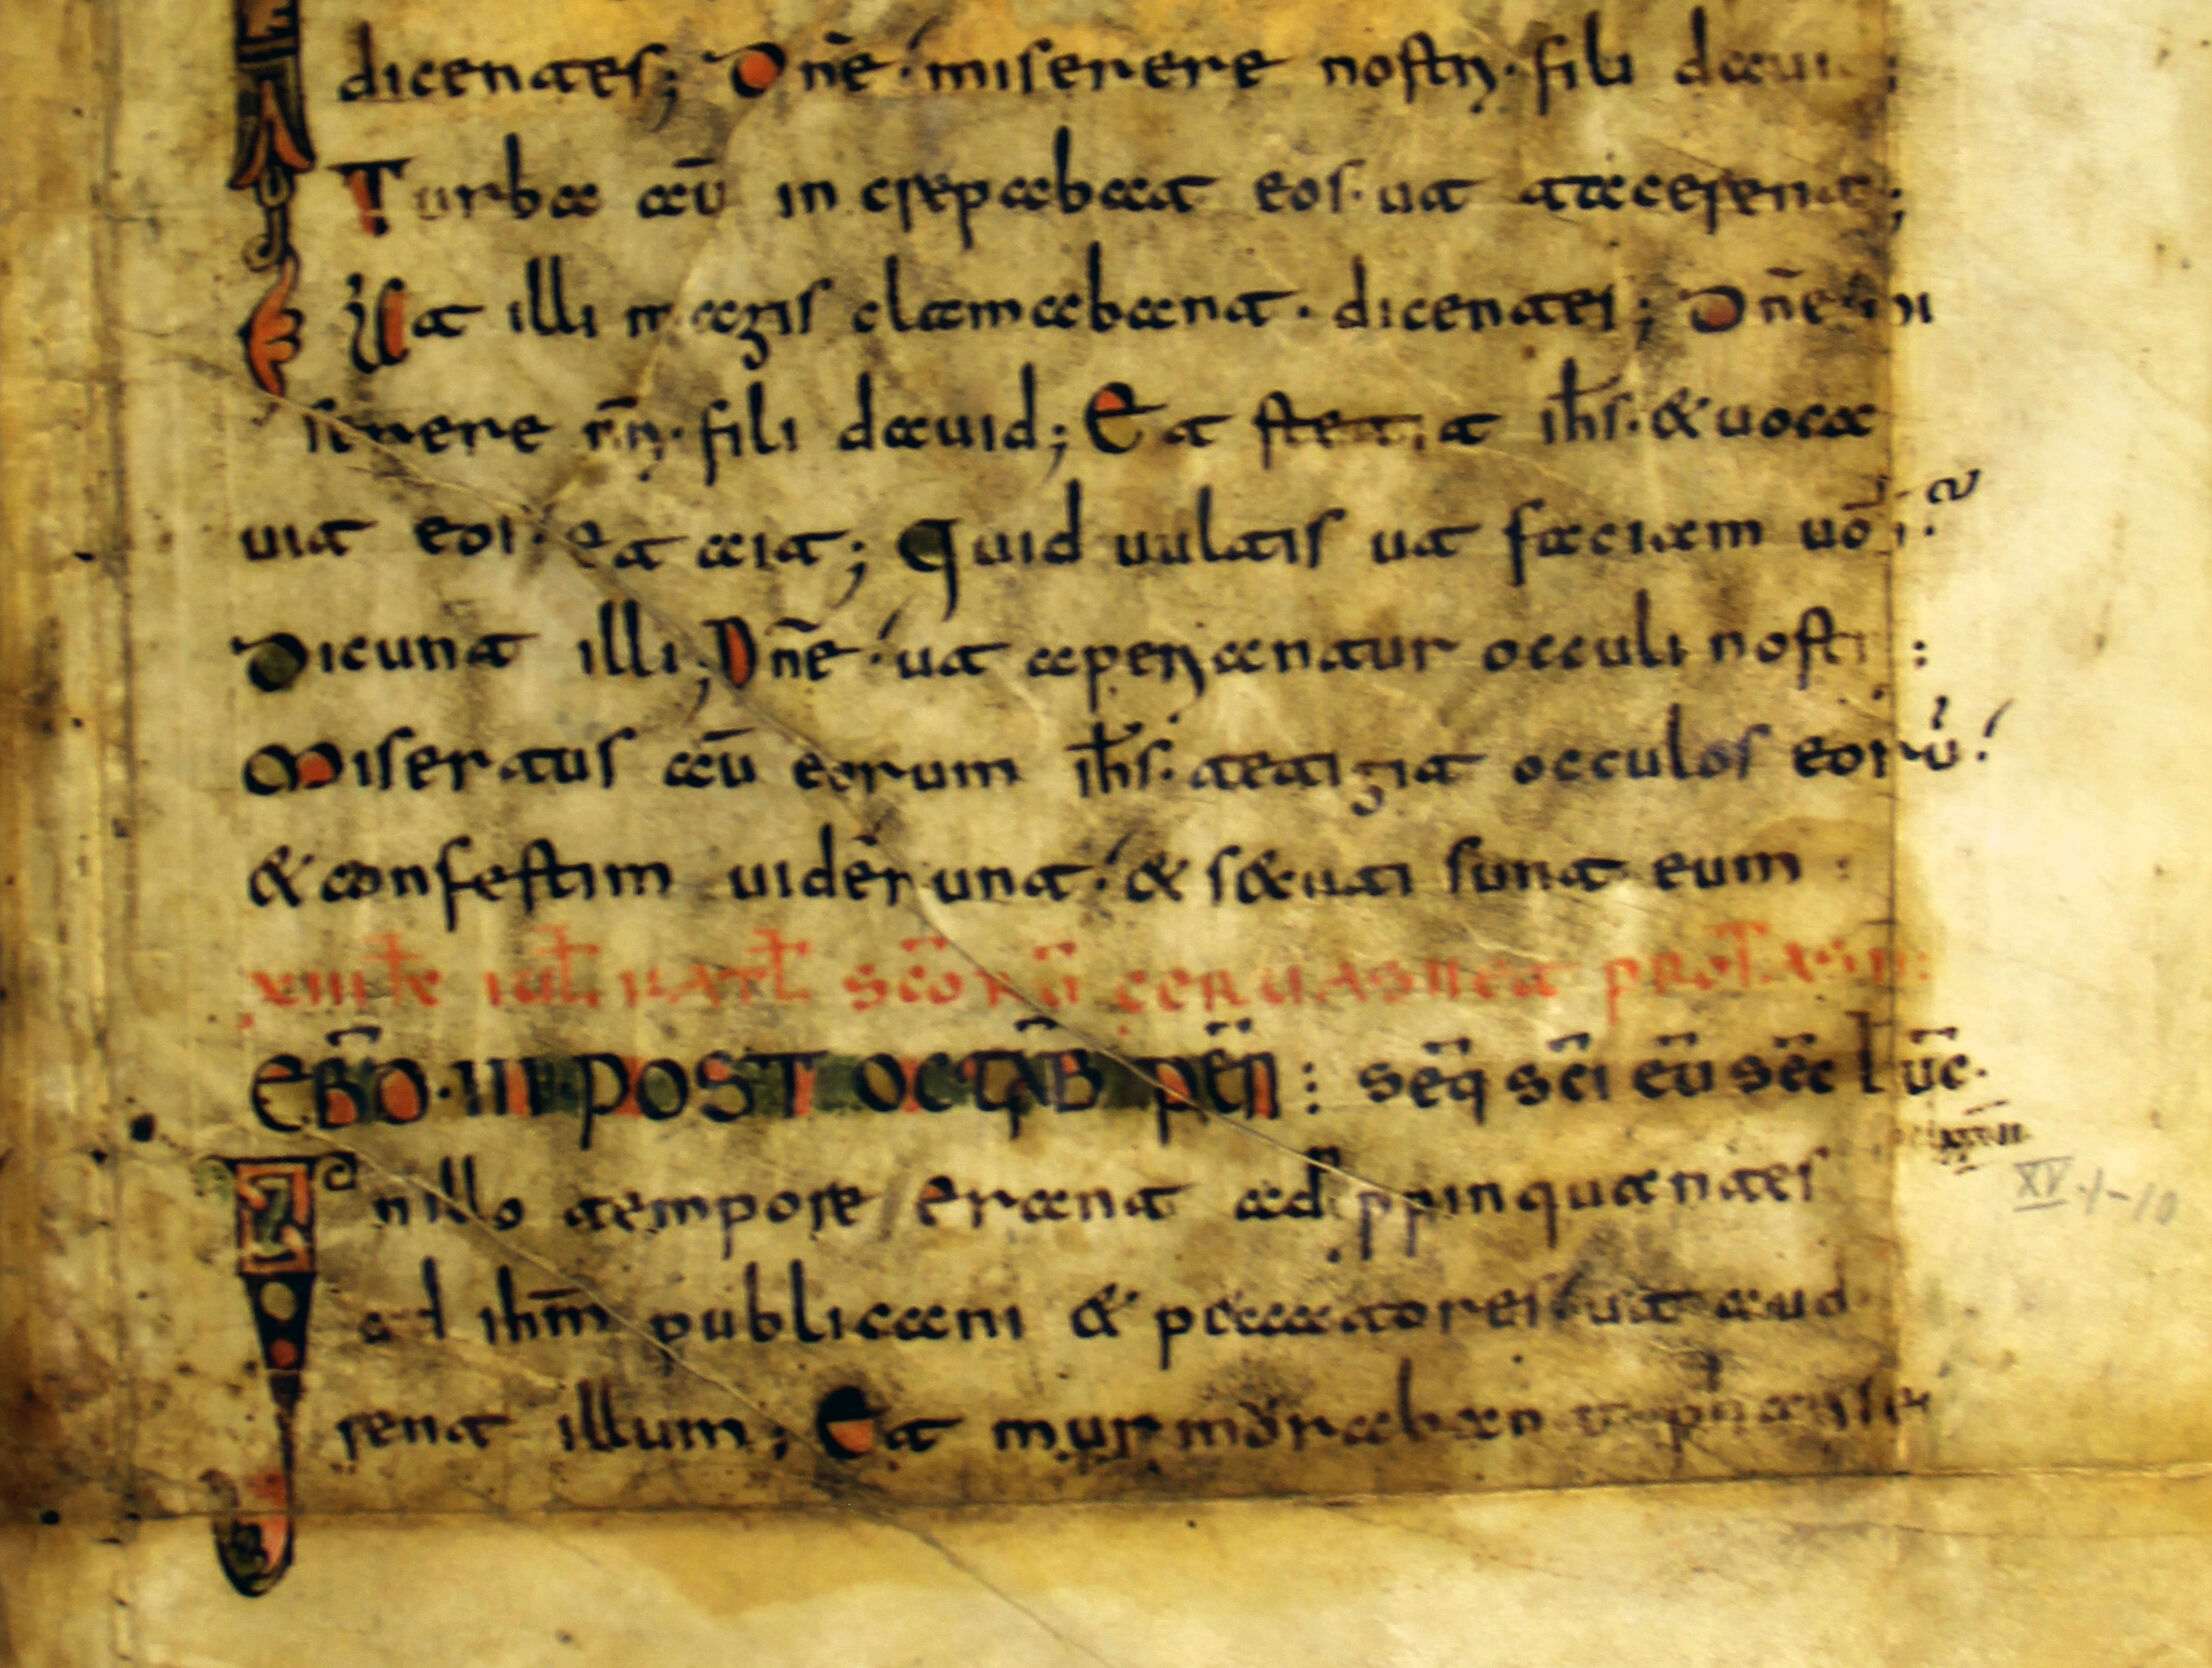 dicentes; Dn̄e miserere nostri. fili daui :
Turba aū increpabat eos. ut tacerent;
Ad illi magis clamabant. dicentes; Dn̄e mi
serere nr̄i. fili dauid; Et stetit ih̄s. & uoca
uit eos. et ait; Quid uultis ut faciam uob̄?
Dicunt illi; Dn̄e ut aperiantur occuli nostri :
Miseratus aū eorum ih̄s. tetigit occulos eorū.
& confestim uiderunt. & secuti sunt eum :
xiiii kł iuł nat̄ sc̄orū geruasii et protasii:
EBD̄. III POST OCTAB̄ PEN̄ : seq̄ sc̄i eū sec̄ luc̄.
In illo tempore erant adppinquantes
ad ihm̄ publicani & peccatores ut aud
rent illum; Et murmorabant pharisei
XV 1-10